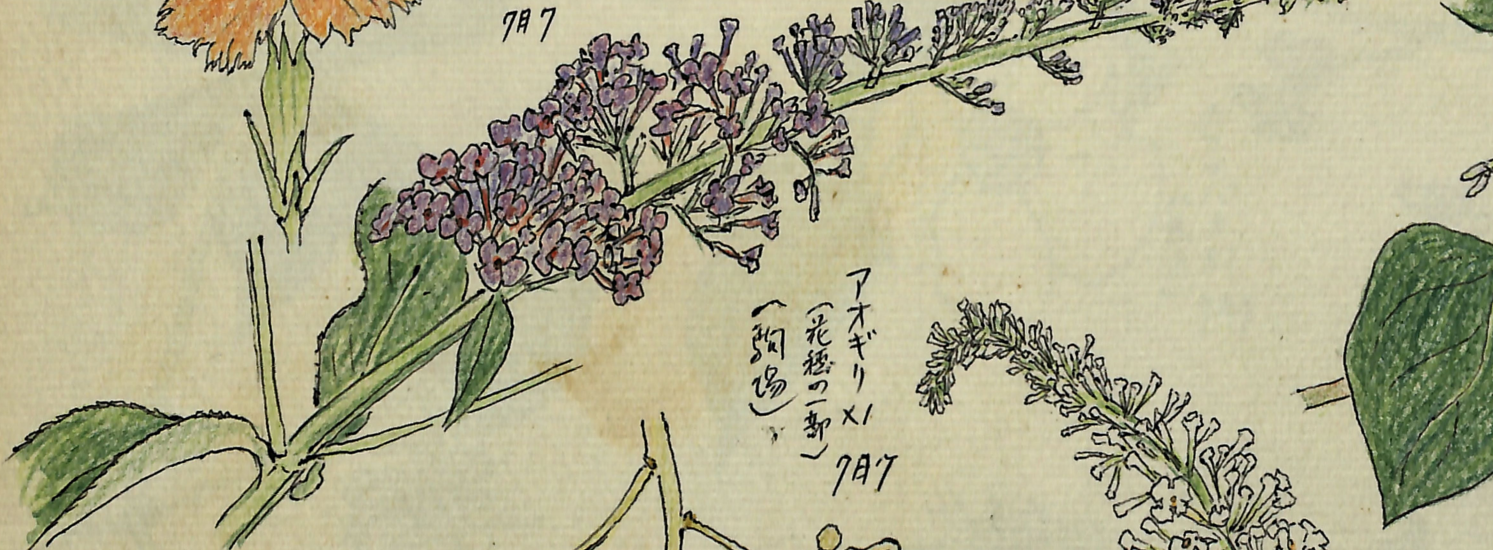 7月7
アオギリ ×1
(花穂の一部)
(駒場)
7月7